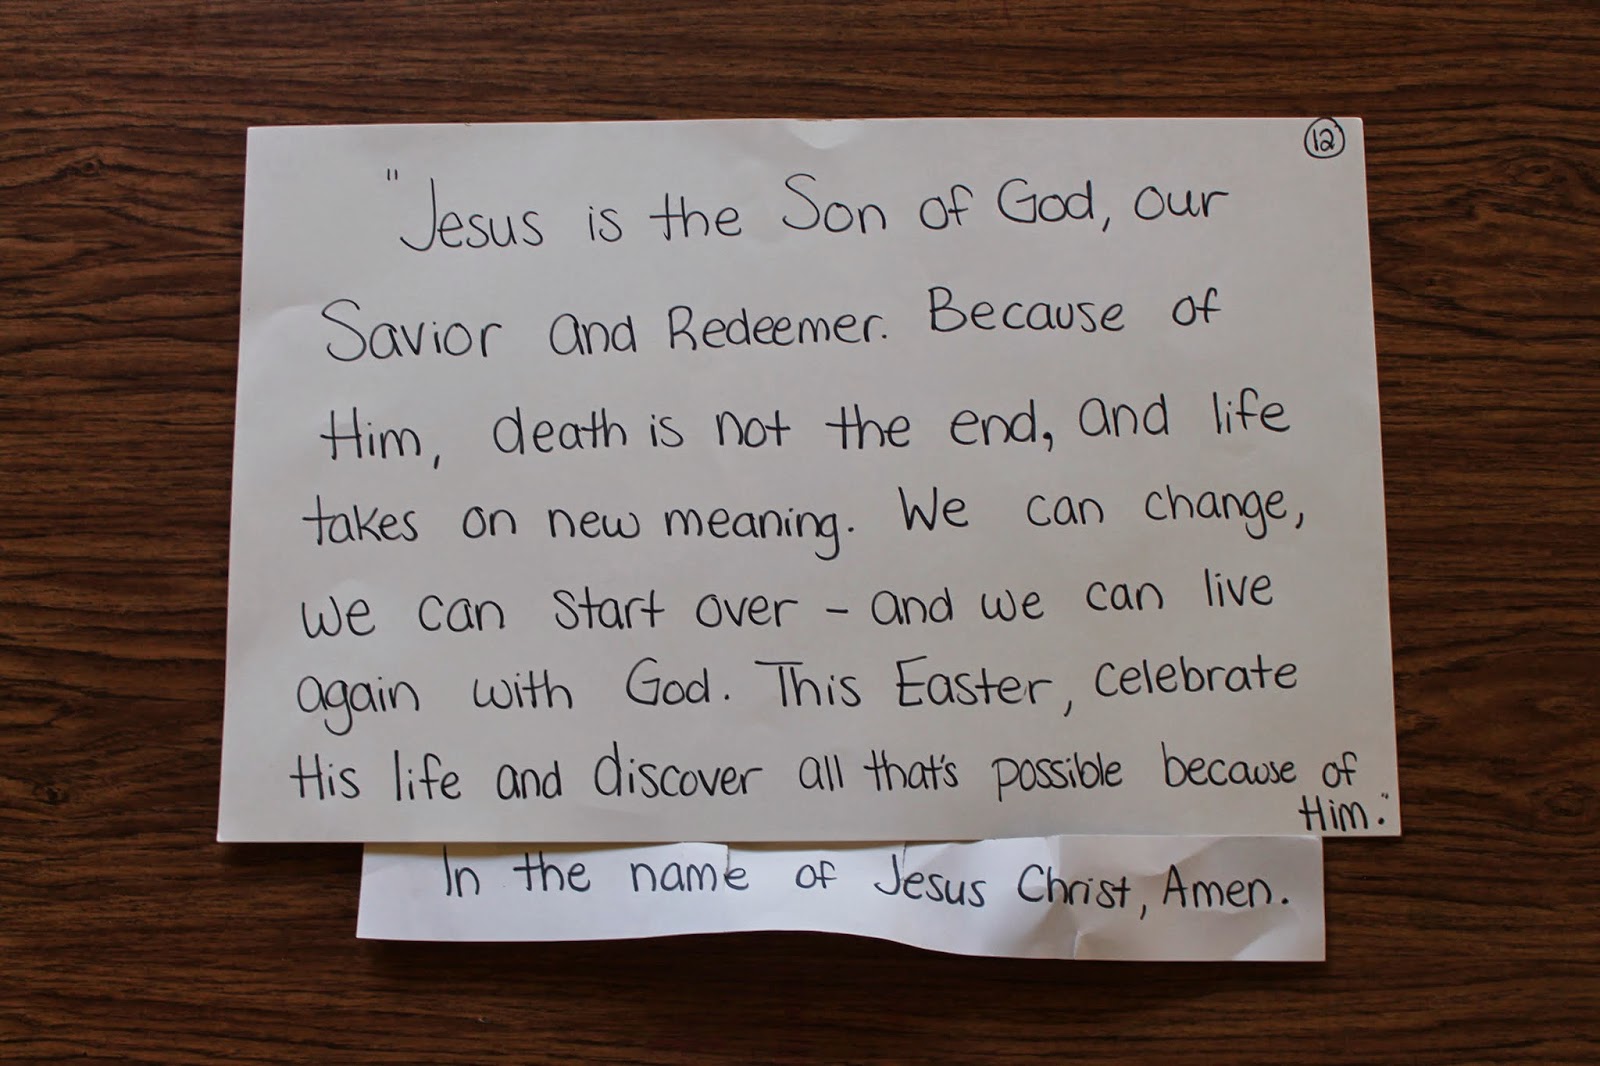 12
"Jesus is the Son of God, our
Savior and Redeemer. Because of
Him, death is not the end, and life
takes on new meaning. We can change,
we can start over - and we can live
again with God. This Easter, celebrate
His life and discover all that's possible because of
Him."
In the name of Jesus Christ, Amen.